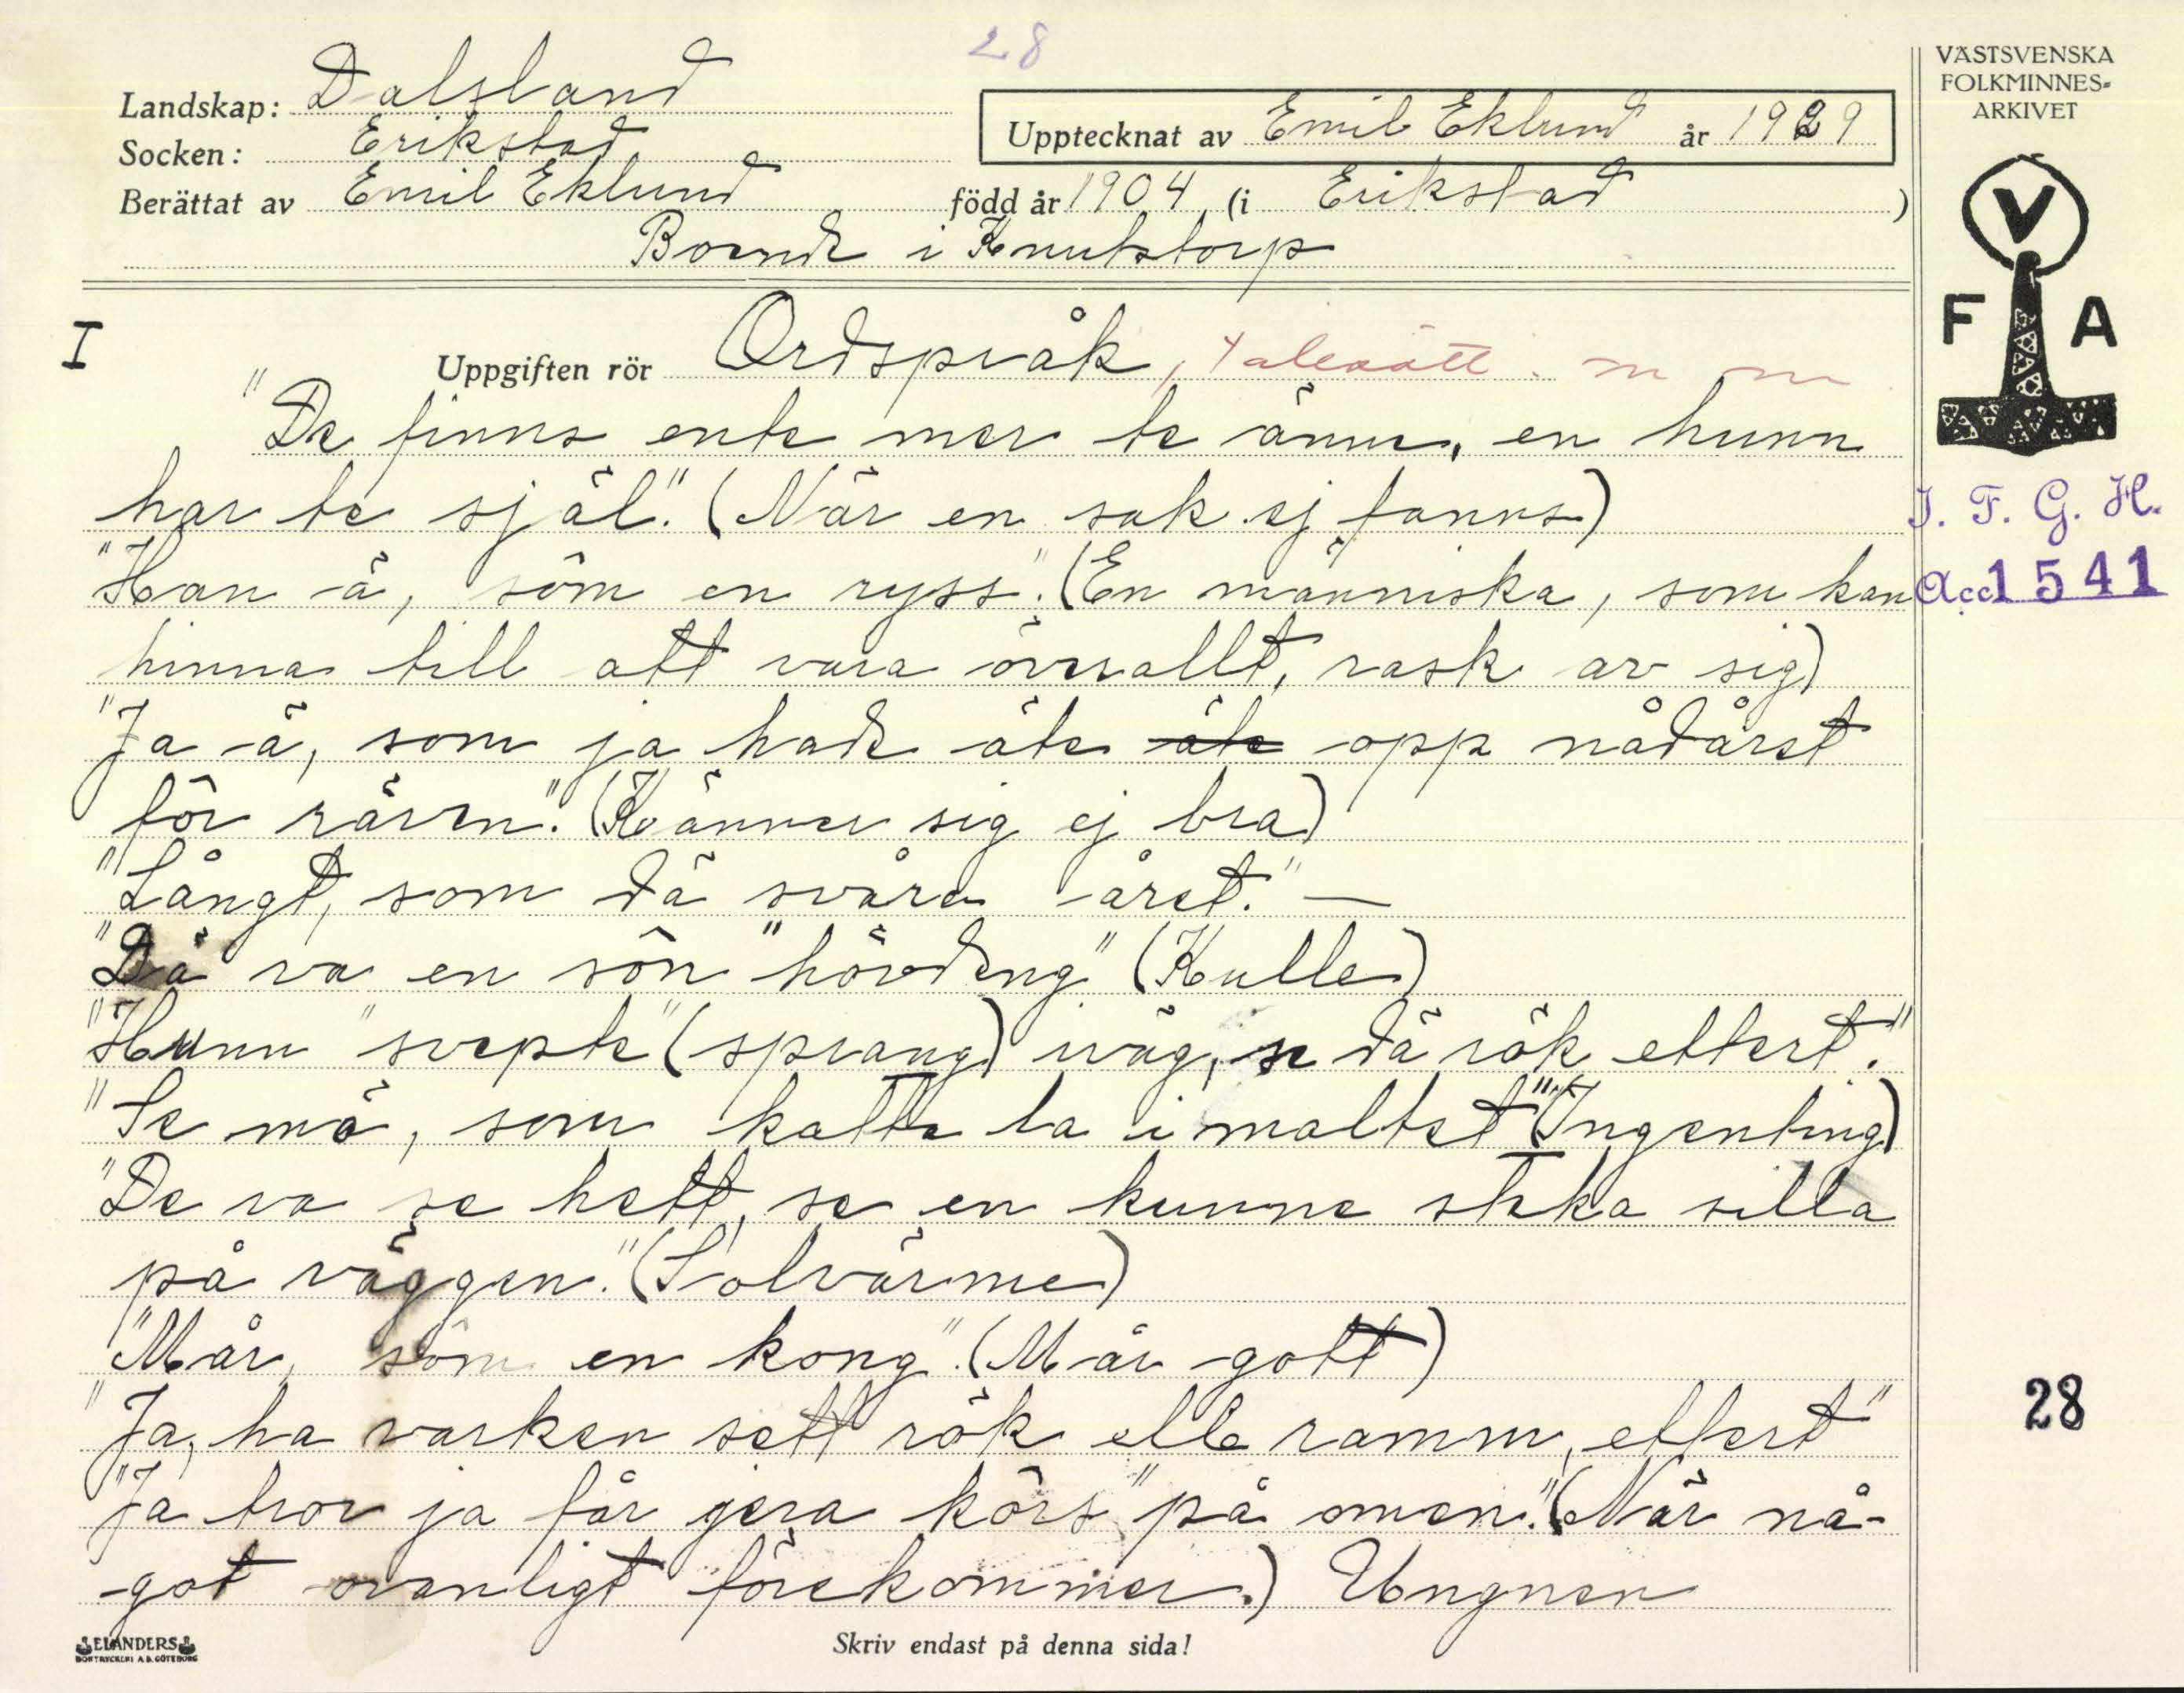 28
VÄSTSVENSKA
FOLKMINNES-
ARKIVET
Landskap: Dalsland
Socken: Erikstad
Upptecknat av Emil Eklund år 1929
Berättat av Emil Eklund född år 1904 (i Erikstad)
Boende i Knutstorp
V
F A
I
Uppgiften rör Ordspråk, talesätt. m m
"De finns ente mer te änne, en hunn
har te själ." (När en sak ej fanns)
"Han ä, söm en ryss". (En människa, som kan
hinna till att vara överallt, rask av sig)
"Ja ä, som ja hade äte äte opp nådåret
för räven." (Känner sig ej bra)
"Långt, som dä svåra året." —
"Dä va en sön "hövdeng" (Kulle)
"Hunn "svepte" (sprang) iväg, se dä rök ettert."
"Se mö, som katta la i maltet" (Ingenting)
"De va se hett, se en kunne steka silla
på väggen." (Solvärme)
"Mår, söm en kong". (Mår gott)
"Ja, ha varken sett rök elle ramm, ettert"
"Ja tror ja får jera körs" på omen." (När nå-
got ovanligt förekommer.) Ungnen
J. F. G. H.
Acc 1541
28
ELANDERS
BOKTRYCKERI A.B. GÖTEBORG
Skriv endast på denna sida!